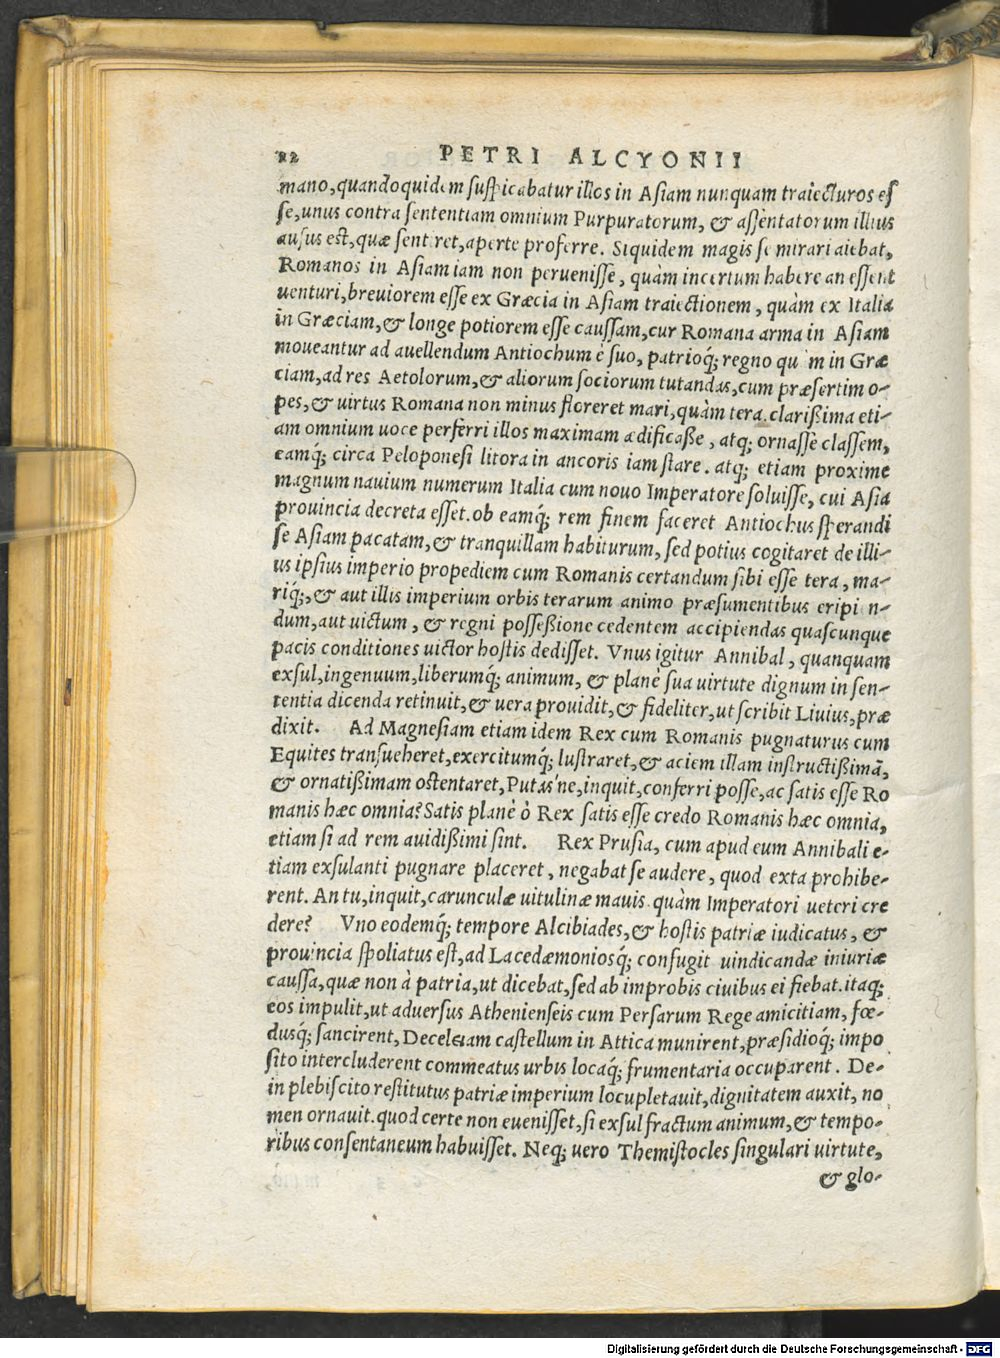 22 PETRI ALCYONII
mano, quandoquidem suspicabatur illos in Asiam nunquam traiecturos es
se, unus contra sententiam omnium Purpuratorum, & assentatorum illius
ausus est, quæ sentiret, aperte proferre. Siquidem magis se mirari aiebat,
Romanos in Asiam iam non peruenisse, quàm incertum habere an essent
uenturi, breuiorem esse ex Græcia in Asiam traiectionem, quàm ex Italia
in Græciam, & longe potiorem esse caussam, cur Romana arma in Asiam
moueantur ad auellendum Antiochum è suo, patrioq́; regno qu m in Græ
ciam, ad res Aetolorum, & aliorum sociorum tutandas, cum præsertim o-
pes, & uirtus Romana non minus floreret mari, quàm tera. clarißima eti-
am omnium uoce perferri illos maximam ædificaße, atq; ornasse classem,
eamq́; circa Peloponesi litora in ancoris iam stare. atq; etiam proxime
magnum nauium numerum Italia cum nouo Imperatore soluisse, cui Asia
prouincia decreta esset. ob eamq́; rem finem faceret Antiochus sperandi
se Asiam pacatam, & tranquillam habiturum, sed potius cogitaret de illi-
us ipsius imperio propediem cum Romanis certandum sibi esse tera, ma-
riq́;, & aut illis imperium orbis terarum animo præsumentibus eripi n-
dum, aut uictum, & regni posseßione cedentem accipiendas quascunque
pacis conditiones uictor hostis dedisset. Vnus igitur Annibal, quanquam
exsul, ingenuum, liberumq́; animum, & planè sua uirtute dignum in sen-
tentia dicenda retinuit, & uera prouidit, & fideliter, ut scribit Liuius, præ
dixit. Ad Magnesiam etiam idem Rex cum Romanis pugnaturus cum
Equites transueheret, exercitumq́; lustraret, & aciem illam instructißimā,
& ornatißimam ostentaret, Putas'ne, inquit, conferri posse, ac satis esse Ro
manis hæc omnia? Satis planè ô Rex satis esse credo Romanis hæc omnia,
etiam si ad rem auidißimi sint. Rex Prusia, cum apud eum Annibali e-
tiam exsulanti pugnare placeret, negabat se audere, quod exta prohibe-
rent. An tu, inquit, carunculæ uitulinæ mauis quàm Imperatori ueteri cre
dere? Vno eodemq́; tempore Alcibiades, & hostis patriæ iudicatus, &
prouincia spoliatus est, ad Lacedæmoniosq́; confugit uindicandæ iniuriæ
caussa, quæ non à patria, ut dicebat, sed ab improbis ciuibus ei fiebat. itaq;
eos impulit, ut aduersus Athenienseis cum Persarum Rege amicitiam, fœ-
dusq́; sancirent, Deceleiam castellum in Attica munirent, præsidioq́; impo
sito intercluderent commeatus urbis locaq́; frumentaria occuparent. De-
in plebiscito restitutus patriæ imperium locupletauit, dignitatem auxit, no
men ornauit. quod certe non euenisset, si exsul fractum animum, & tempo-
ribus consentaneum habuisset. Neq; uero Themistocles singulari uirtute,
& glo-
Digitalisierung gefördert durch die Deutsche Forschungsgemeinschaft - DFG